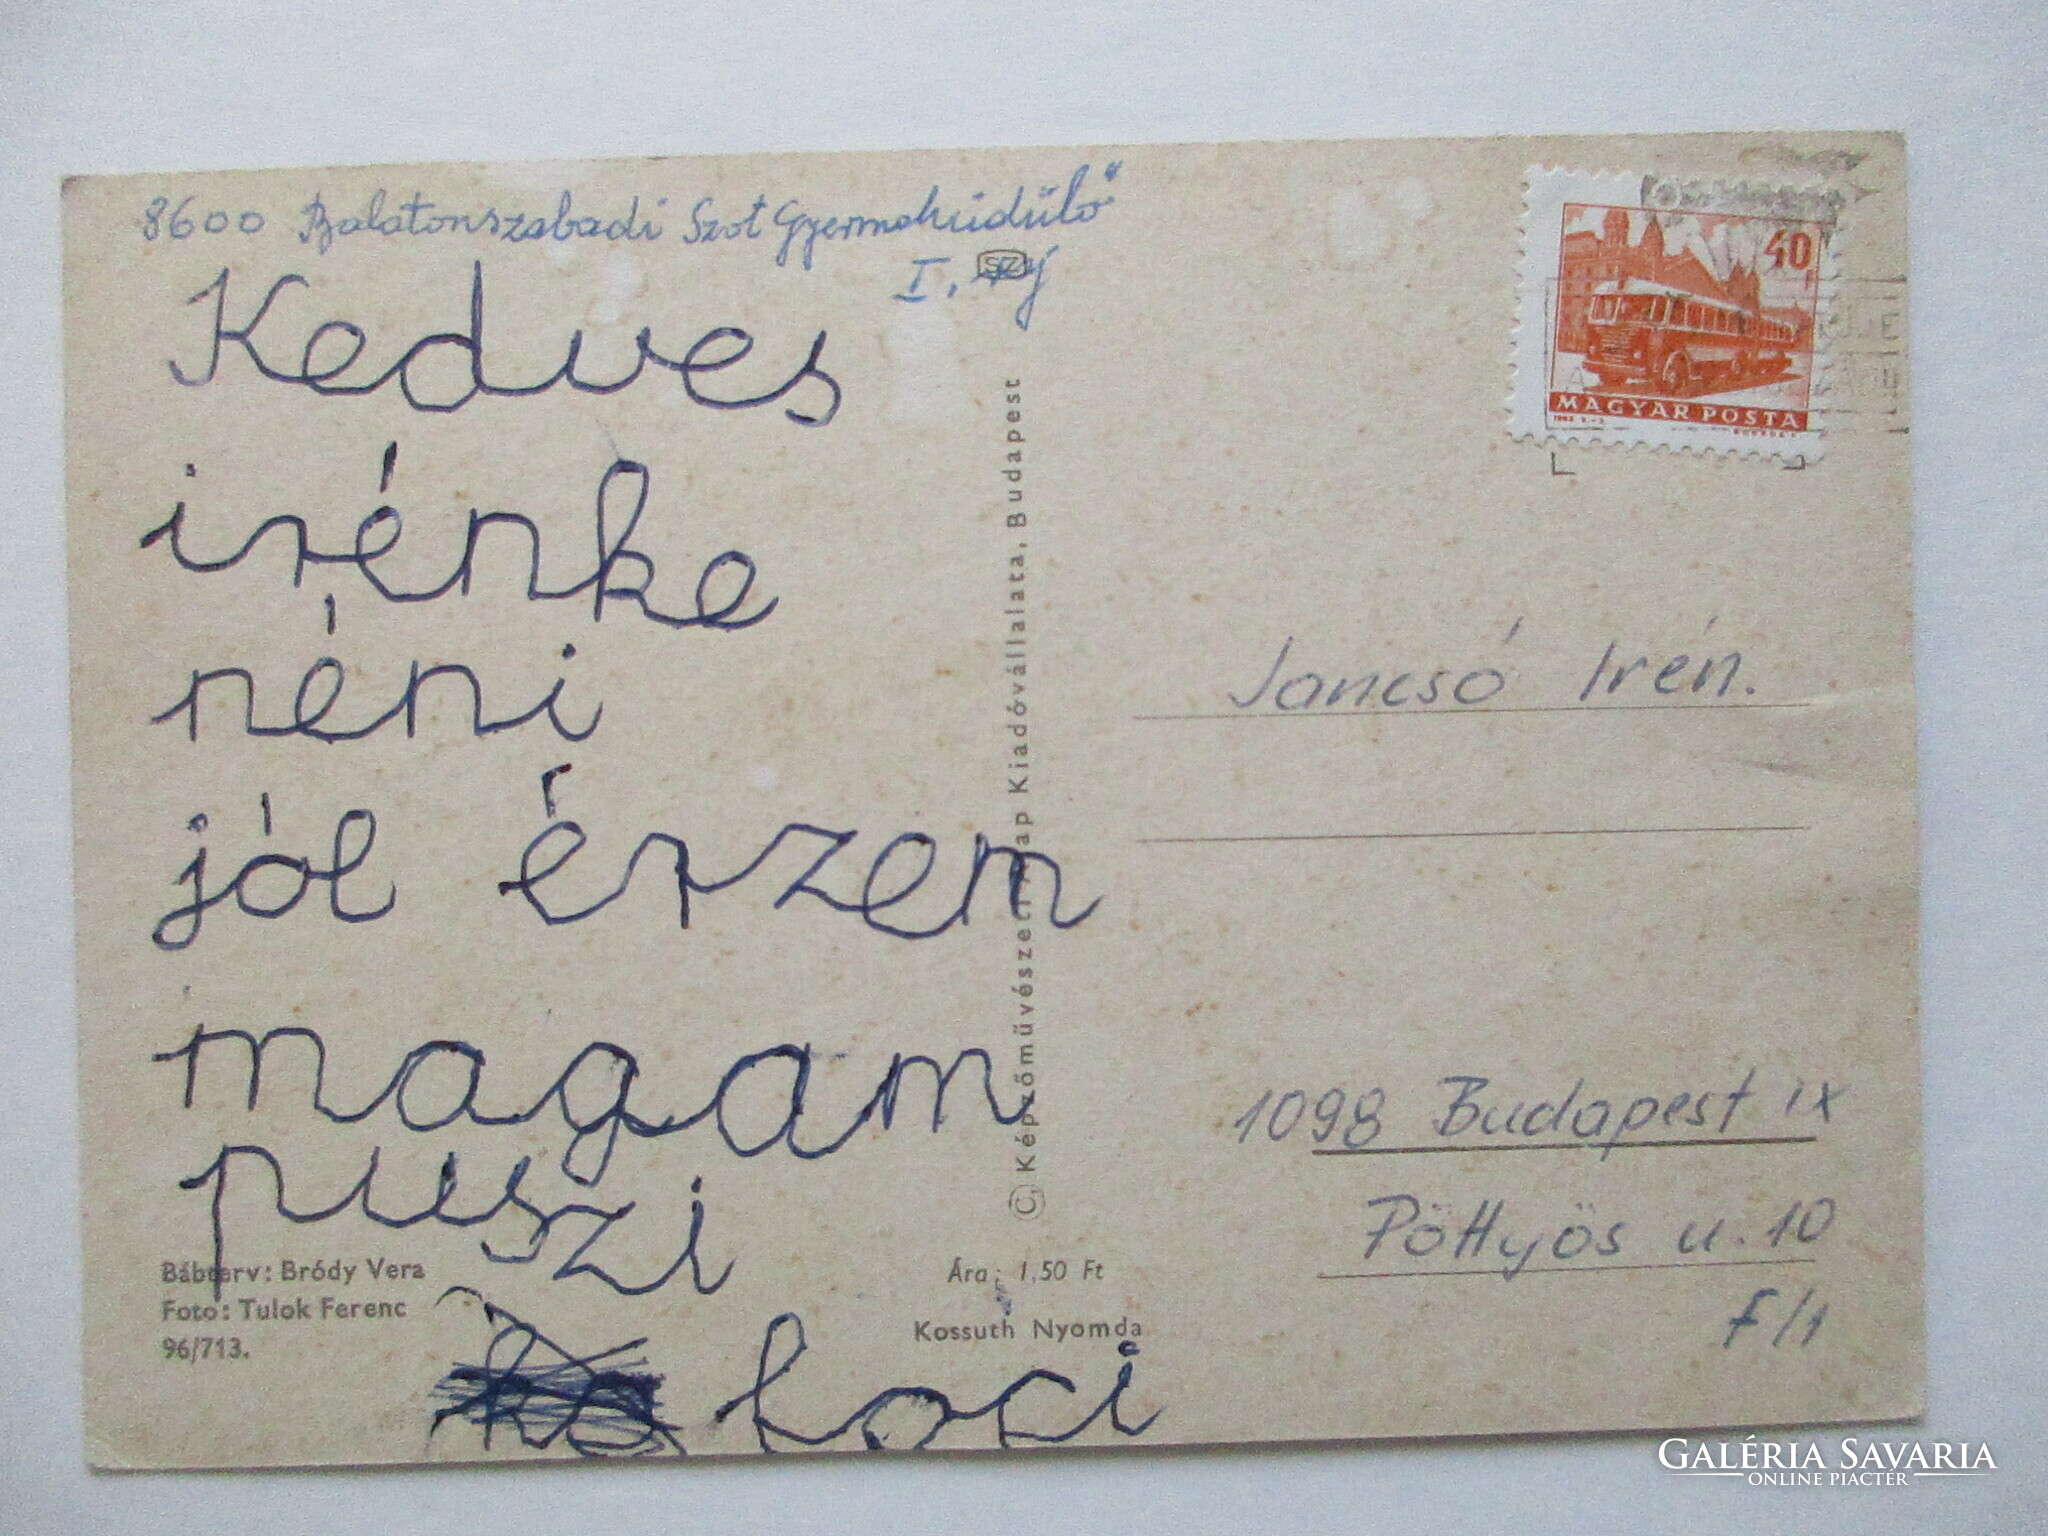 8600 Balatonszabadi Szot Gyermeküdülő"
I.
Kedves
irénke
néni
jól érzem
magam
puszi
Koci
Bábterv: Bródy Vera
Foto: Tulok Ferenc
96/713.
Ára: 1,50 Ft
Kossuth Nyomda
© Képzőművészeti Alap Kiadóvállalata, Budapest
40
MAGYAR POSTA
Jancsó Irén.
1098 Budapest IX
Pöttyös u. 10
F/1
GALÉRIA SAVARIA
ONLINE PIACTÉR